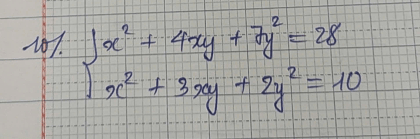 10%. { x² + 4xy + 7y² = 28
x² + 3xy + 2y² = 10